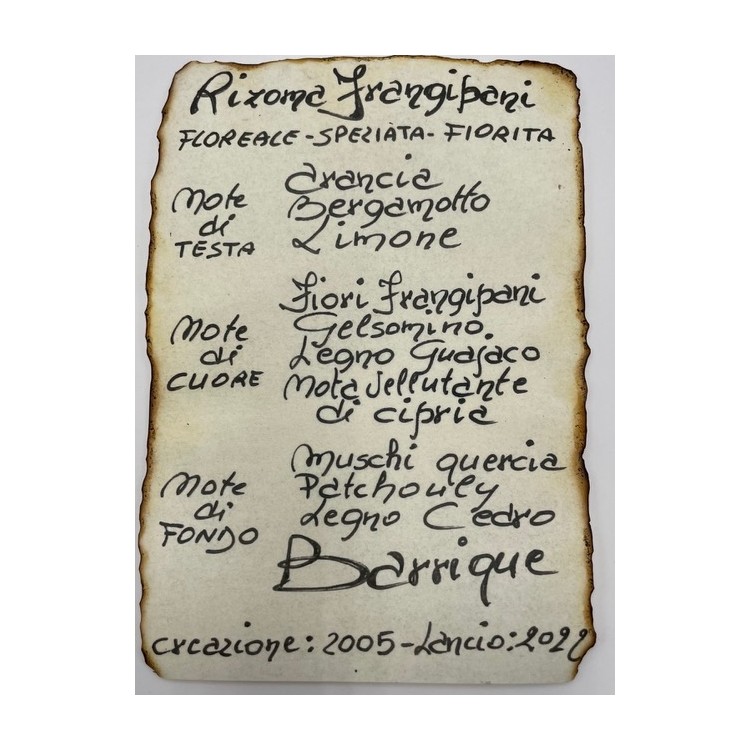 Rizoma Frangipani
FLOREALE - SPEZIATA - FIORITA
Note di TESTA
Arancia
Bergamotto
Limone
Note di CUORE
Fiori Frangipani
Gelsomino
Legno Guajaco
Nota Vellutante
di cipria
Note di FONDO
Muschi quercia
Patchouly
Legno Cedro
Barrique
creazione: 2005 - Lancio: 2022